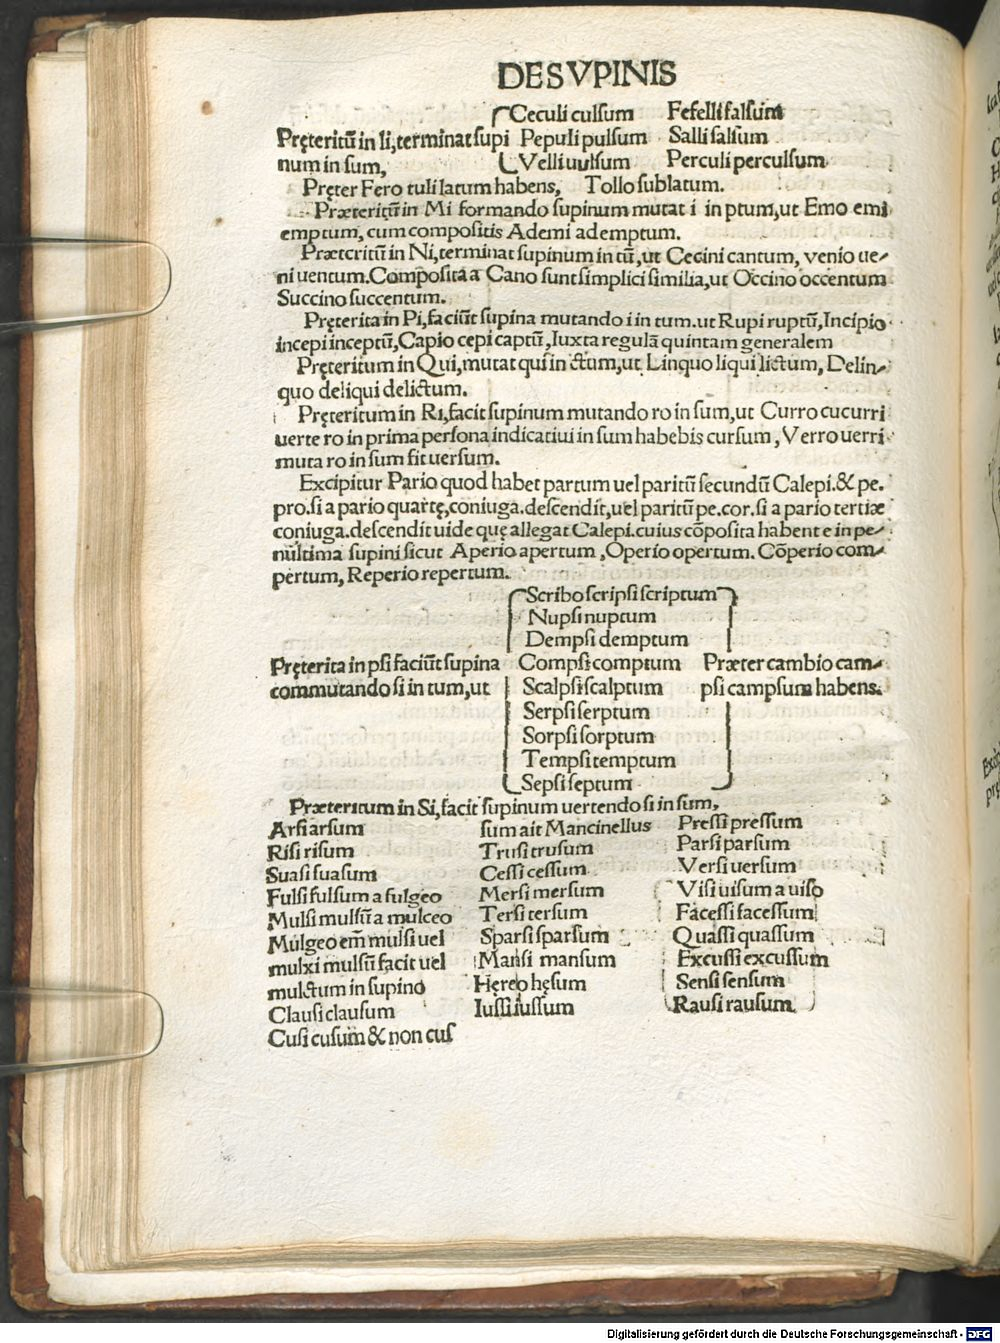 DE SVPINIS
Ceculi culsum Fefelli falsum
Pręteritũ in li, terminat supi Pepuli pulsum Salli salsum
num in sum, Velli uulsum Perculi perculsum
Pręter Fero tuli latum habens, Tollo sublatum.
Præteritũ in Mi formando supinum mutat i in ptum, ut Emo emi
emptum, cum compositis Ademi ademptum.
Prætcritũ in Ni, terminat supinum in tũ, ut Cecini cantum, venio ue-
ni uentum. Composita a Cano sunt simplici similia, ut Occino occentum
Succino succentum.
Pręterita in Pi, faciũt supina mutando i in tum. ut Rupi ruptũ, Incipio
incepi inceptũ, Capio cepi captũ, Iuxta regulã quintam generalem
Pręteritum in Qui, mutat qui in ctum, ut Linquo liqui lictum, Delin-
quo deliqui delictum.
Pręteritum in Ri, facit supinum mutando ro in sum, ut Curro cucurri
uerte ro in prima persona indicatiui in sum habebis cursum, Verro uerri
muta ro in sum fit uersum.
Excipitur Pario quod habet partum uel paritũ secundũ Calepi. & pe.
pro. si a pario quartę, coniuga. descendit, uel paritũ pe. cor. si a pario tertiæ
coniuga. descendit uide quę allegat Calepi. cuius cõposita habent e in pe-
nũltima supini sicut Aperio apertum, Operio opertum. Cõperio com-
pertum, Reperio repertum.
Scribo scripsi scriptum
Nupsi nuptum
Dempsi demptum
Pręterita in psi faciũt supina Compsi comptum Præter cambio cam-
commutando si in tum, ut Scalpsi scalptum psi campsum habens.
Serpsi serptum
Sorpsi sorptum
Tempsi temptum
Sepsi septum
Præteritum in Si, facit supinum uertendo si in sum,
Arsi arsum sum ait Mancinellus Pressi pressum
Risi risum Trusi trusum Parsi parsum
Suasi suasum Cessi cessum Versi uersum
Fulsi fulsum a fulgeo Mersi mersum Visi uisum a uiso
Mulsi mulsũ a mulceo Tersi tersum Facessi facessum
Mulgeo em̃ mulsi uel Sparsi sparsum Quassi quassum
mulxi mulsũ facit uel Mansi mansum Excussi excussum
mulctum in supino Hęreo hęsum Sensi sensum
Clausi clausum Iussi iussum Rausi rausum
Cusi cusum & non cus
Digitalisierung gefördert durch die Deutsche Forschungsgemeinschaft - DFG